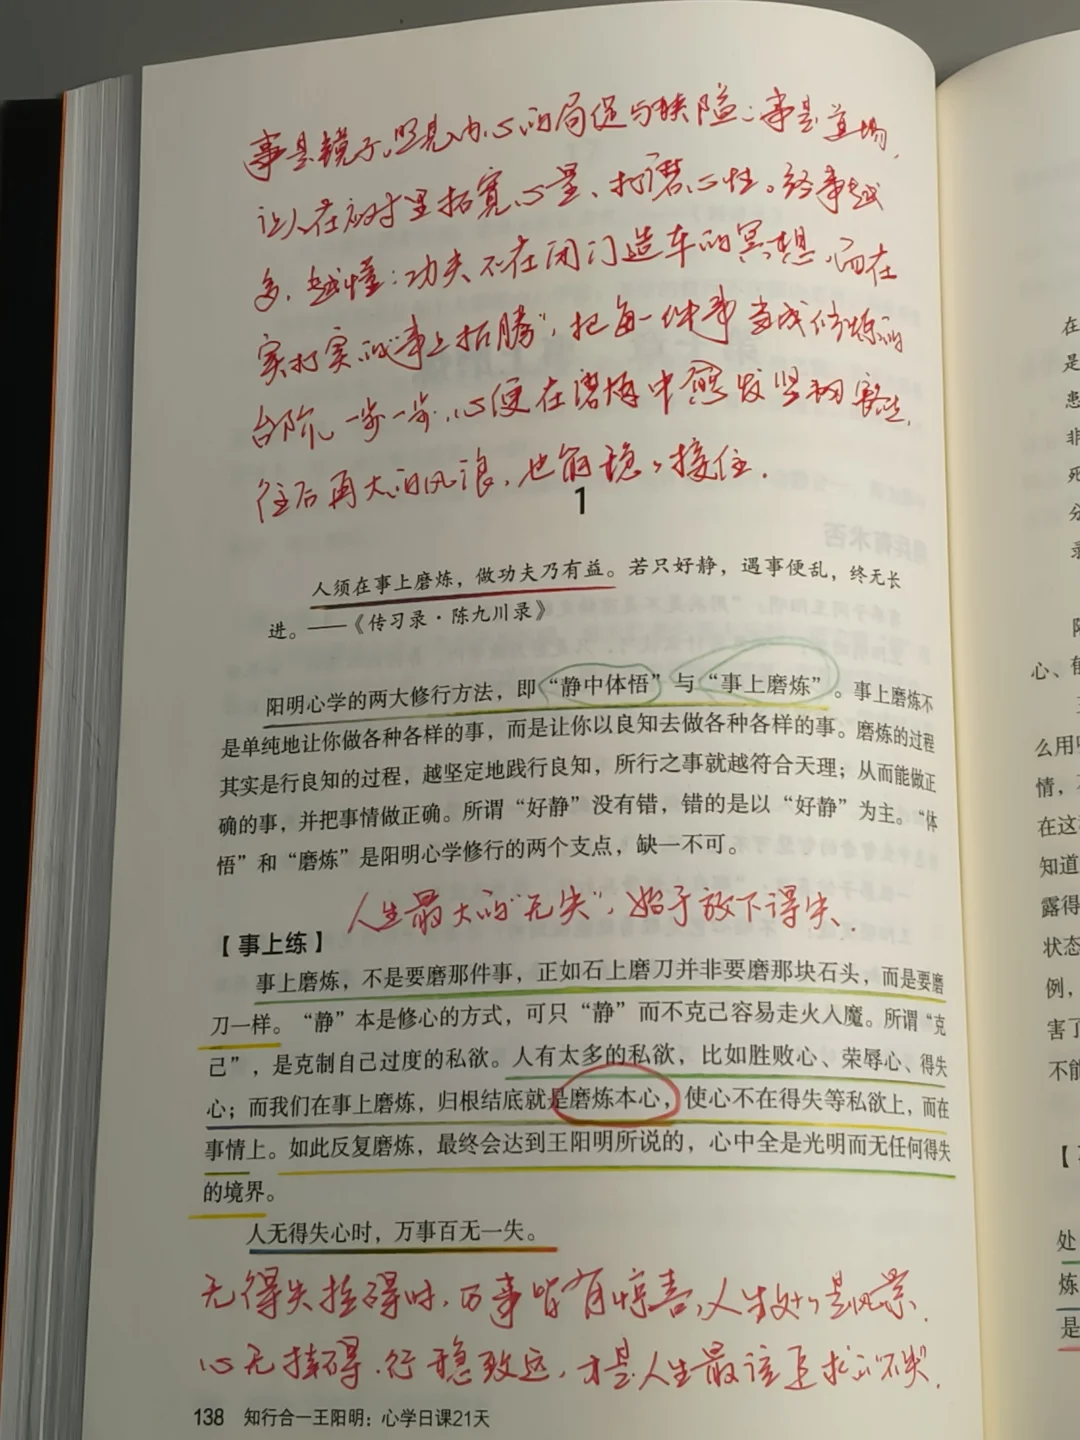 事是镜子,照见内心的局促与狭隘;事是道场,
让人在应对里拓宽心量、打磨心性。经事越
多,越懂:功夫不在闭门造车的冥想,而在
实打实的“事上拓腾”,把每一件事当成修炼的
台阶,一步一步,心便在磨炼中愈发坚韧豁达,
往后再大的风浪,也能稳稳接住.
1
人须在事上磨炼,做功夫乃有益。若只好静,遇事便乱,终无长
进。——《传习录·陈九川录》
阳明心学的两大修行方法,即“静中体悟”与“事上磨炼”。事上磨炼不
是单纯地让你做各种各样的事,而是让你以良知去做各种各样的事。磨炼的过程
其实是行良知的过程,越坚定地践行良知,所行之事就越符合天理;从而能做正
确的事,并把事情做正确。所谓“好静”没有错,错的是以“好静”为主。“体
悟”和“磨炼”是阳明心学修行的两个支点,缺一不可。
人生最大的“无失”,始于放下得失.
【事上练】
事上磨炼,不是要磨那件事,正如石上磨刀并非要磨那块石头,而是要磨
刀一样。“静”本是修心的方式,可只“静”而不克己容易走火入魔。所谓“克
己”,是克制自己过度的私欲。人有太多的私欲,比如胜败心、荣辱心、得失
心;而我们在事上磨炼,归根结底就是磨炼本心,使心不在得失等私欲上,而在
事情上。如此反复磨炼,最终会达到王阳明所说的,心中全是光明而无任何得失
的境界。
人无得失心时,万事百无一失。
无得失挂碍时,万事皆有惊喜,人生处处是风景.
心无挂碍,行稳致远,才是人生最该追求的“不失”.
138 知行合一王阳明:心学日课21天
在
是
患
非
死
分
录
心、
么用
情,
在这
知道
露得
状态
例,
害了
不能
处
炼
是